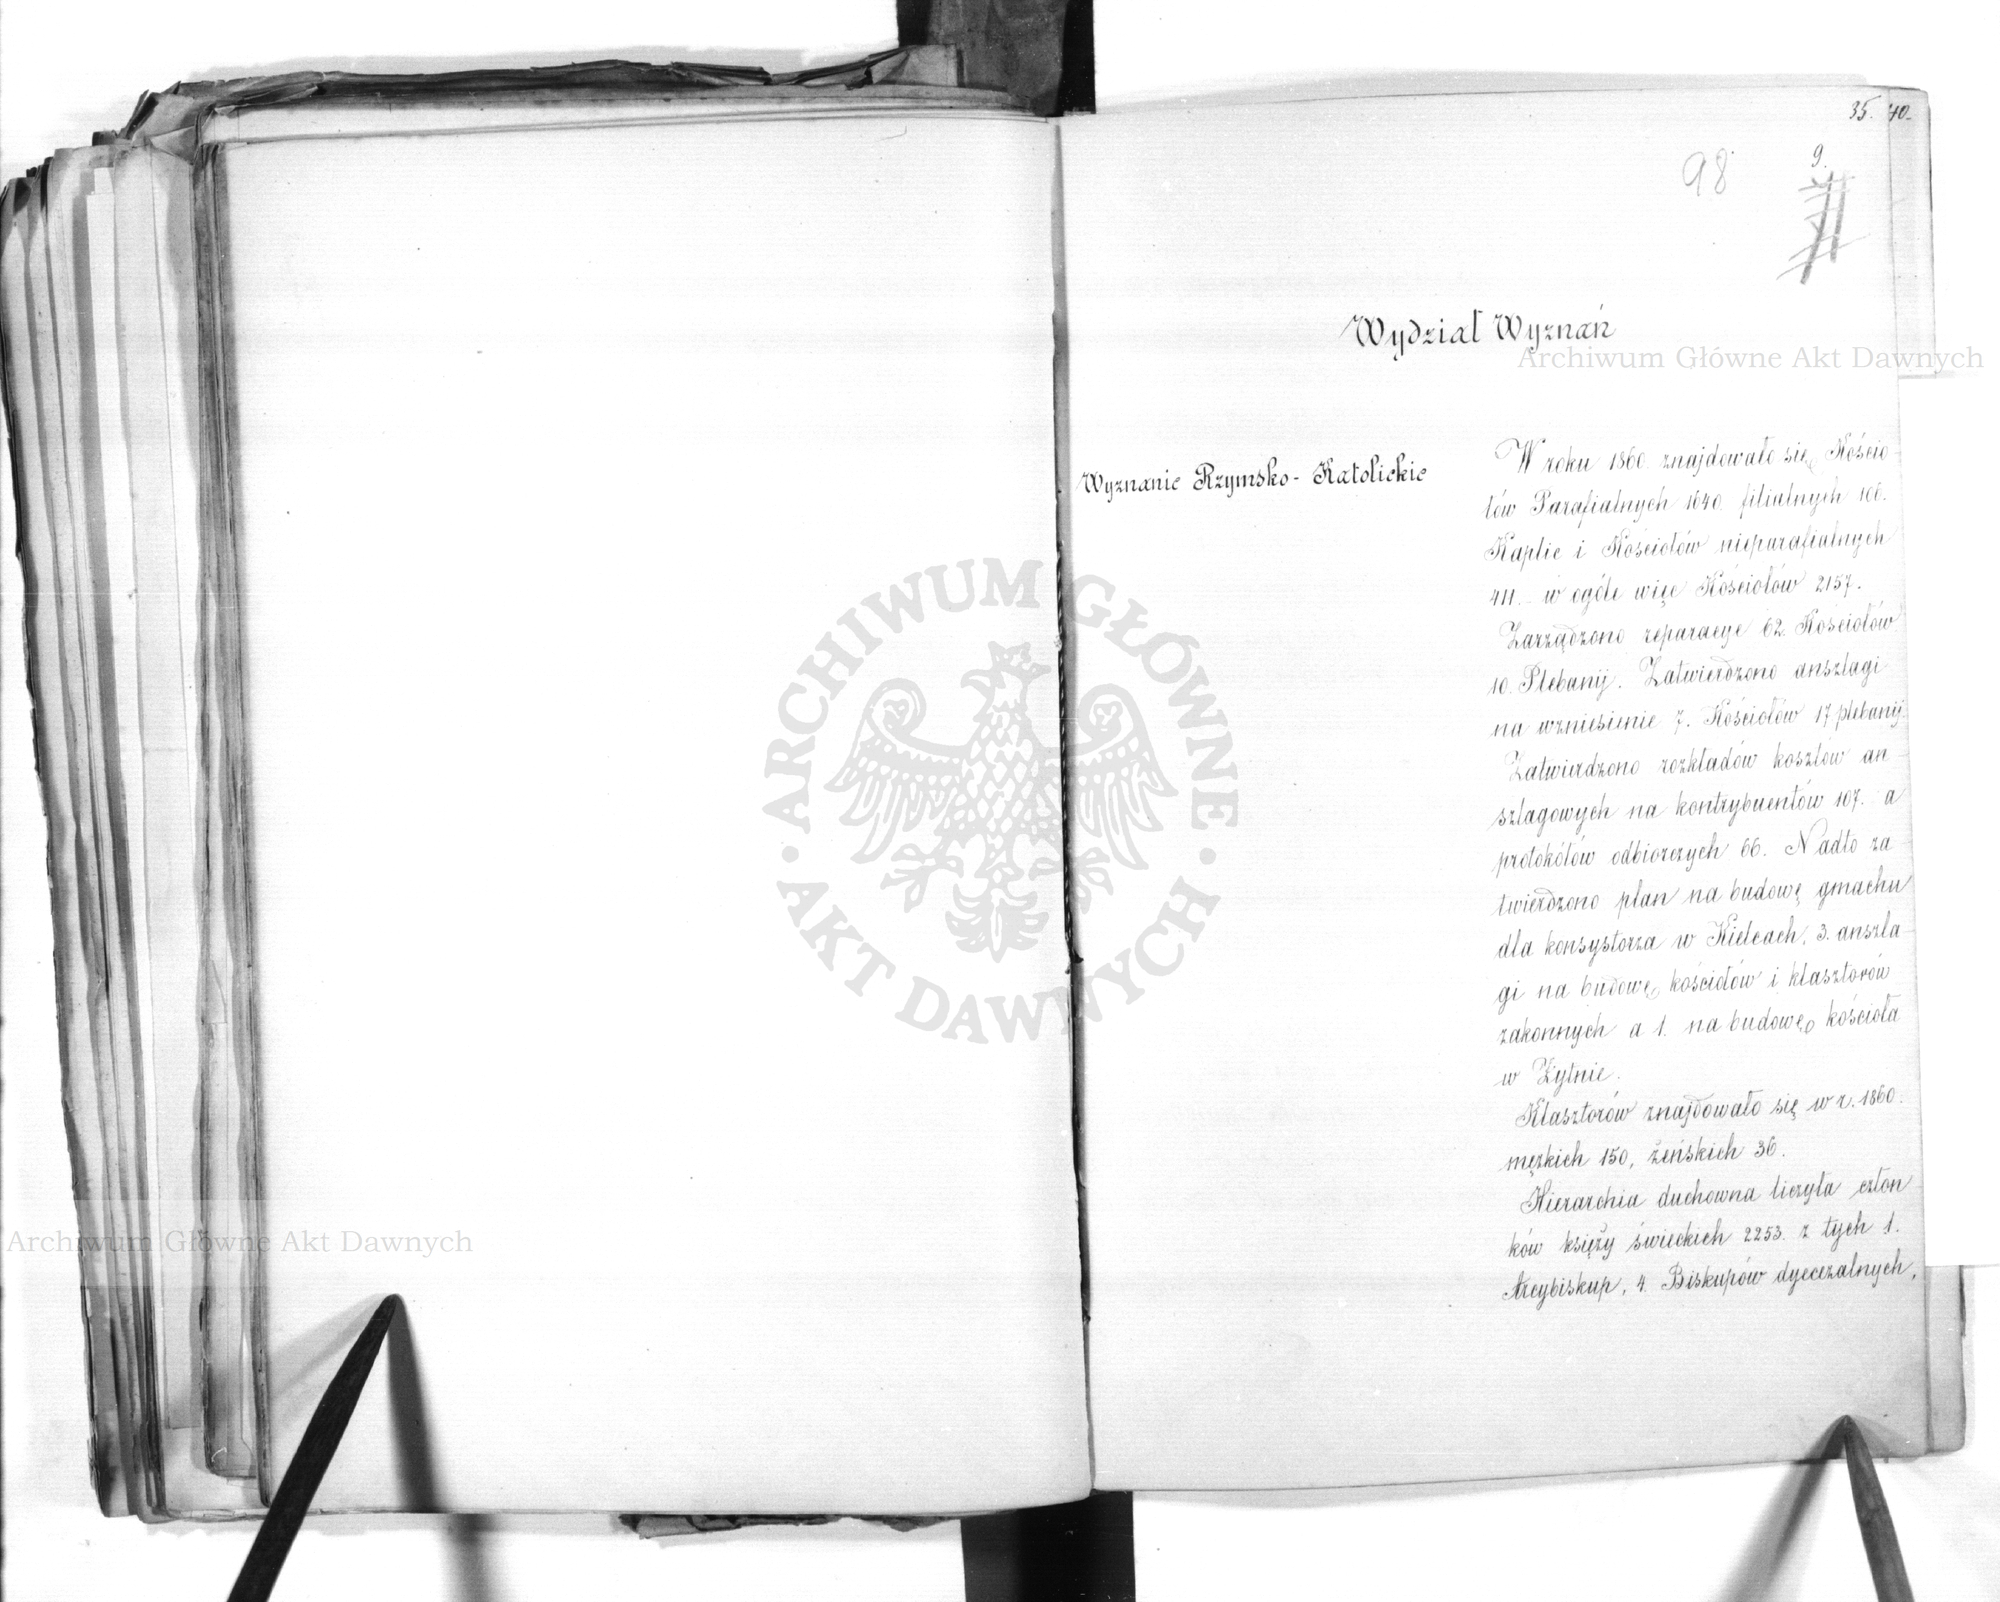 35. 40.
98
9.
Wydział Wyznań
Archiwum Główne Akt Dawnych
Wyznanie Rzymsko-Katolickie
W roku 1860. znajdowało się Kościo-
łów Parafialnych 1640. filialnych 106.
Kaplic i Kościołów nieparafialnych
411. - w ogóle więc Kościołów 2157.
Zarządzono reparacye 62. Kościołów
10. Plebanij. Zatwierdzono anszlagi
na wzniesienie 7. Kościołów 17 plebanij.
Zatwierdzono rozkładów kosztów an-
szlagowych na kontrybuentów 107. a
protokółów odbiorczych 66. Nadto za-
twierdzono plan na budowę gmachu
dla konsystorza w Kielcach, 3. anszla-
gi na budowę kościołów i klasztorów
zakonnych a 1. na budowę kościoła
w Żytnie.
Klasztorów znajdowało się w r. 1860.
męzkich 150, żeńskich 36.
Hierarchia duchowna liczyła człon-
ków księży świeckich 2253. z tych 1.
Arcybiskup, 4. Biskupów dyecezalnych,
ARCHIWUM GŁÓWNE
AKT DAWNYCH
Archiwum Główne Akt Dawnych